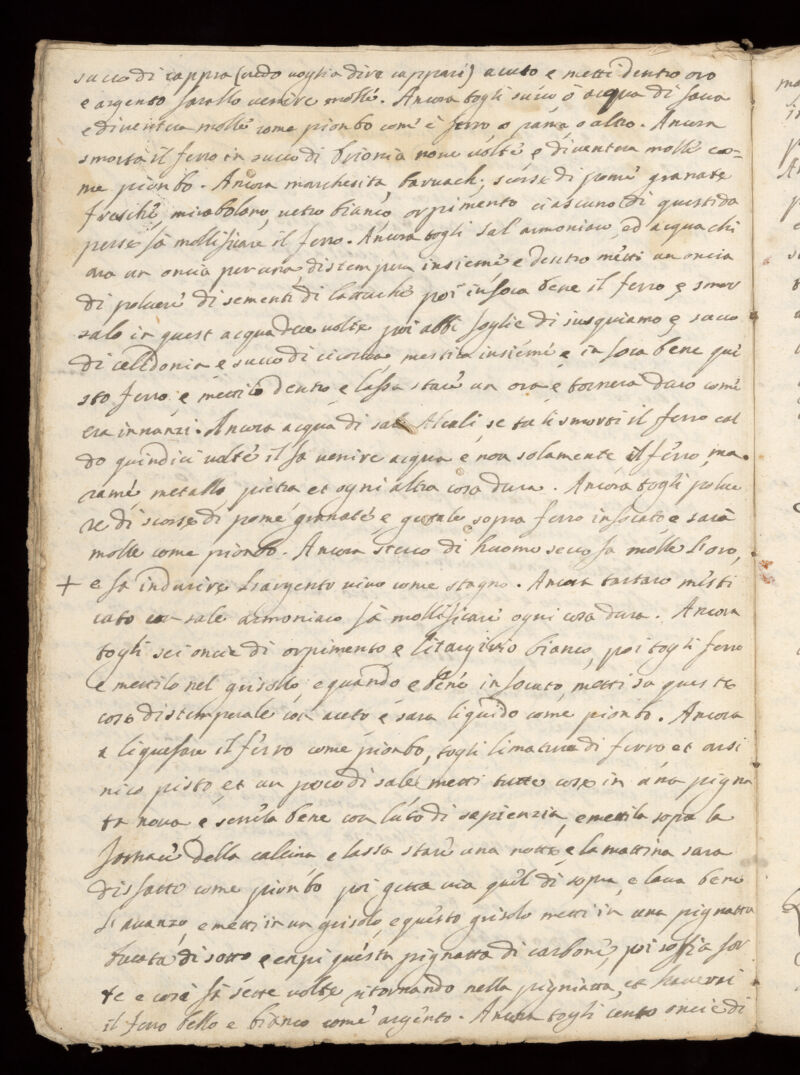 succo di cappra (credo voglia dire cappari) acuto e metti dentro oro
e argento farallo venire mollé. Ancora togli succo ò acqua di fava
e diventera mollé come piombo com' è ferro o rame o altro. Ancora
smorta il ferro in succo di brionia nove volté e diventera mollé co=
me piombo. Ancora marchesita, baruach, scorse di pomé granate
freschi, mirabolano, vetro bianco, orpimento ciascuno di questi da
per se fà mollificare il ferro. Ancora togli sal'armoniaco, ed acqua chi
ara un oncia per una, distempera insiemé e dentro metti un oncia
di polueré di sementi di lattuché poi infoca bene il ferro e smor
salo in quest acqua due volte poi abbi foglie di iusquiamo e succo
di celidonia e succo di cicorea mestita insiémé e infoca bene qué
sto ferro e mettilo dentro e lassa staré un ora e tornera duro comé
era innanzi. Ancora acqua di sale Alcali, se tu li smorti il ferro cal
do quindici volté il fà venire acqua e non solamente il ferro, ma
ramé metallo pietra et ogni altra cosa dura. Ancora togli polue
re di scorse di pomé granaté e gettale sopra ferro infocato e sarà
molle come piombo. Ancora sterco di huomo secco fa molle l'oro,
+ e fà indurire l'argento vivo come stagno. Ancora tartaro mésti
cato con sale armoniaco fà mollificaré ogni cosa dura. Ancora
togli sei oncie di orpimento e litargirio bianco, poi togli ferro
e mettilo nel grisollo, e quando e bené infocato, metti sù queste
cose distemperale con aceto é sara liquido comé piombo. Ancora
a liquefare il férro comé piombo, togli limatura di ferro et arsi
nico pisto et un poco di sale metti tutte cose in una pigna
ta nova e serrila bene con luto di sapienzia, e mettila sopra la
fornacé della calcina e lassa staré una notte e la mattina sara
disfatto come piombo poi getta via quél di sopra, e lava bene
l'avanzo, e metti in un grisolo e questo grisolo metti in una pignatta
bucata di sotto e empi questa pignatta di carboné, poi soffia for
te e cosi fà sette volte ritornando nella pigniatta, et haverai
il ferro bello e bianco comé argento. Ancora togli cento oncie di